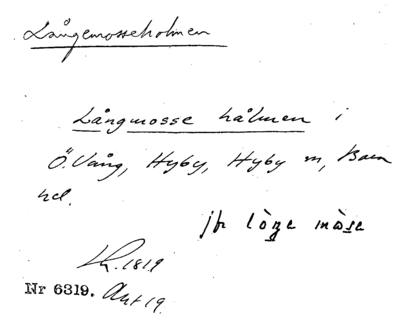 Långemosseholmen
Långmosse hålmen i
Ö. Vång, Hyby, Hyby sn, Bara
hd.
jfr lòŋe mòse
Lk. 1819
Nr 6319. Akt 19.